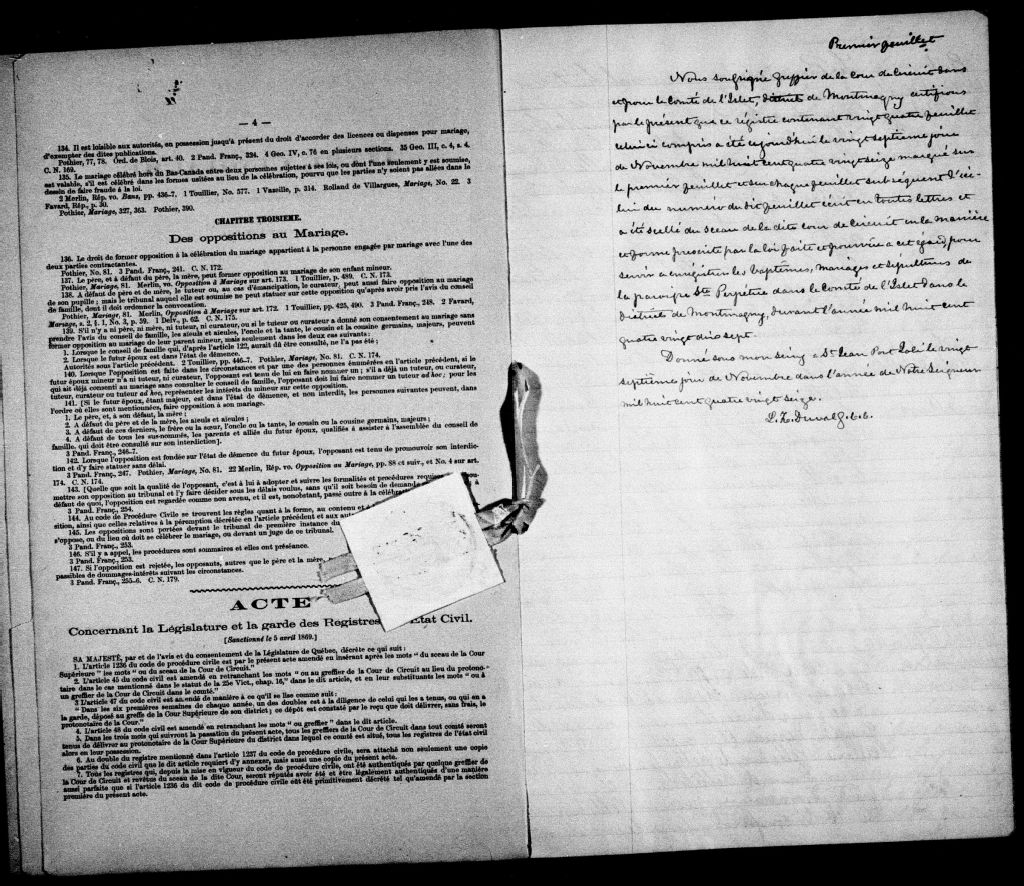 — 4 —
134. Il est loisible aux autorités, en possession jusqu'à présent du droit d'accorder des licences ou dispenses pour mariage,
d'exempter des dites publications.
Pothier, 77, 78. Ord. de Blois, art. 40. 2 Pand. Franç., 324. 4 Geo. IV, c. 76 en plusieurs sections. 35 Geo. III, c. 4, s. 4.
C. N. 169.
135. Le mariage célébré hors du Bas-Canada entre deux personnes sujettes à ses lois, ou dont l'une seulement y est soumise,
est valable, s'il est célébré dans les formes usitées au lieu de la célébration, pourvu que les parties n'y soient pas allées dans le
dessein de faire fraude à la loi.
2 Merlin, Rép. vo. Bans, pp. 436-7. 1 Touillier, No. 577. 1 Vazeille, p. 314. Rolland de Villargues, Mariage, No. 22. 3
Favard, Rép., p. 30.
Pothier, Mariage, 327, 363. Pothier, 390.
CHAPITRE TROISIEME.
Des oppositions au Mariage.
136. Le droit de former opposition à la célébration du mariage appartient à la personne engagée par mariage avec l'une des
deux parties contractantes.
Pothier, No. 81. 3 Pand. Franç., 241. C. N. 172.
137. Le père, et à défaut du père, la mère, peut former opposition au mariage de son enfant mineur.
Pothier, Mariage, 81. Merlin, vo. Opposition à Mariage sur art. 173. 1 Touillier, p. 489. C. N. 173.
138. A défaut de père et de mère, le tuteur, ou, au cas d'émancipation, le curateur, peut aussi faire opposition au mariage
de son pupille; mais le tribunal auquel elle est soumise ne peut statuer sur cette opposition qu'après avoir pris l'avis du conseil
de famille, dont il doit ordonner la convocation.
Pothier, Mariage, 81. Merlin, Opposition à Mariage sur art. 172. 1 Touillier, pp. 425, 490. 3 Pand. Franç., 248. 2 Favard,
Mariage, s. 2, § 1, No. 3, p. 59. 1 Delv., p. 62. C. N. 175.
139. S'il n'y a ni père, ni mère, ni tuteur, ni curateur, ou si le tuteur ou curateur a donné son consentement au mariage sans
prendre l'avis du conseil de famille, les aïeuls et aïeules, l'oncle et la tante, le cousin et la cousine germains, majeurs, peuvent
former opposition au mariage de leur parent mineur, mais seulement dans les deux cas suivants:
1. Lorsque le conseil de famille qui, d'après l'article 122, aurait dû être consulté, ne l'a pas été;
2. Lorsque le futur époux est dans l'état de démence.
Autorités sous l'article précédent. 2 Touillier, pp. 446-7. Pothier, Mariage, No. 81. C. N. 174.
140. Lorsque l'opposition est faite dans les circonstances et par une des personnes énumérées en l'article précédent, si le
futur époux mineur n'a ni tuteur, ni curateur, l'opposant est tenu de lui en faire nommer un; s'il a déjà un tuteur, ou curateur,
qui ait déjà consenti au mariage sans consulter le conseil de famille, l'opposant doit lui faire nommer un tuteur ad hoc; pour les
tuteur, curateur ou tuteur ad hoc, représenter les intérêts du mineur sur cette opposition.
141. [Si le futur époux, étant majeur, est dans l'état de démence, et non interdit, les personnes suivantes peuvent, dans
l'ordre où elles sont mentionnées, faire opposition à son mariage.
1. Le père, et, à son défaut, la mère;
2. A défaut du père et de la mère, les aïeuls et aïeules;
3. A défaut de ces derniers, le frère ou la sœur, l'oncle ou la tante, le cousin ou la cousine germains, majeurs;
4. A défaut de tous les sus-nommés, les parents et alliés du futur époux, qualifiés à assister à l'assemblée du conseil de
famille, qui doit être consulté sur son interdiction].
3 Pand. Franç., 246-7.
142. Lorsque l'opposition est fondée sur l'état de démence du futur époux, l'opposant est tenu de promouvoir son interdic-
tion et d'y faire statuer sans délai.
3 Pand. Franç., 247. Pothier, Mariage, No. 81. 22 Merlin, Rép. vo. Opposition au Mariage, pp. 88 et suiv., et No. 4 sur art.
174. C. N. 174.
143. [Quelle que soit la qualité de l'opposant, c'est à lui à adopter et suivre les formalités et procédures
mettre son opposition au tribunal et l'y faire décider sous les délais voulus, sans qu'il soit besoin de demande
défaut de quoi, l'opposition est regardée comme non avenu, et il est, nonobstant, passé outre à la
3 Pand. Franç., 254.
144. Au Code de Procédure Civile se trouvent les règles quant à la forme, au contenu et
sition, ainsi que celles relatives à la péremption décrétée en l'article précédent et aux
145. Les oppositions sont portées devant le tribunal de première instance du
s'oppose, ou du lieu où doit se célébrer le mariage, ou devant un juge de ce tribunal.
3 Pand. Franç., 253.
146. S'il y a appel, les procédures sont sommaires et elles ont préséance.
3 Pand. Franç., 253.
147. Si l'opposition est rejetée, les opposants, autres que le père et la mère,
passibles de dommages-intérêts suivant les circonstances.
3 Pand. Franç., 255-6. C. N. 179.
ACTE
Concernant la Législature et la garde des Registres Etat Civil.
[Sanctionné le 5 avril 1869.]
SA MAJESTÉ, par et de l'avis et du consentement de la Législature de Québec, décrète ce qui suit:
1. L'article 1236 du code de procédure civile est par le présent acte amendé en insérant après les mots "du sceau de la Cour
Supérieure" les mots "ou du sceau de la Cour de Circuit."
2. L'article 45 du code civil est amendé en retranchant les mots "ou au greffier de la Cour de Circuit au lieu du protono-
taire dans le cas mentionné dans le statut de la 25e Vict., chap. 16," dans le dit article, et en leur substituants les mots "ou à
un greffier de la Cour de Circuit dans le comté."
3 L'article 47 du code civil est amendé de manière à ce qu'il se lise comme suit:
"Dans les six premières semaines de chaque année, un des doubles est à la diligence de celui qui les a tenus, ou qui en a
la garde, déposé au greffe de la Cour Supérieure de son district; ce dépôt est constaté par le reçu que doit délivrer, sans frais, le
protonotaire de la Cour."
4. L'article 48 du code civil est amendé en retranchant les mots "ou greffier" dans le dit article.
5. Dans les trois mois qui suivront la passation du présent acte, tous les greffiers de la Cour de Circuit dans tout comté seront
tenus de délivrer au protonotaire de la Cour Supérieure du district dans lequel ce comté est situé, tous les registres de l'état civil
alors en leur possession.
6. Au double du registre mentionné dans l'article 1237 du code de procédure civile, sera attaché non seulement une copie
des parties du code civil que le dit article requiert d'y annexer, mais aussi une copie du présent acte.
7. Tous les registres qui, depuis la mise en vigueur du code de procédure civile, ont été authentiqués par quelque greffier de
la Cour de Circuit et revêtus du sceau de la dite Cour, seront réputés avoir été et être légalement authentiqués d'une manière
aussi parfaite que si l'article 1236 du dit code de procédure civile eût été primitivement décrété tel qu'amendé par la section
première du présent acte.
Premier feuillet
Nous soussigné Greffier de la Cour de Circuit dans
et pour le Comté de l'Islet, district de Montmagny certifions
par le présent que ce régistre contenant vingt quatre feuillet
celui ci compris a été aujourd'hui le vingt septième jour
de Novembre mil huit cent quatre vingt seize marqué sur
le premier feuillet et sur chaque feuillet subséquent d'ice-
lui du numéro du dit feuillet écrit en toutes lettres et
a été scellé du sceau de la dite cour de Circuit en la manière
et forme prescrite par la loi faite et pourvue a cet égard, pour
servir a enrégistrer les baptêmes, mariages et sépultures de
la paroisse Ste Perpétue dans le Comté de l'Islet dans le
District de Montmagny, durant l'année mil huit cent
quatre vingt dix sept.
Donné sous mon seing a St Jean Port Joli le vingt
septième jour de Novembre dans l'année de Notre Seigneur
mil huit cent quatre vingt seize.
L. Z. Duval g.c.c.